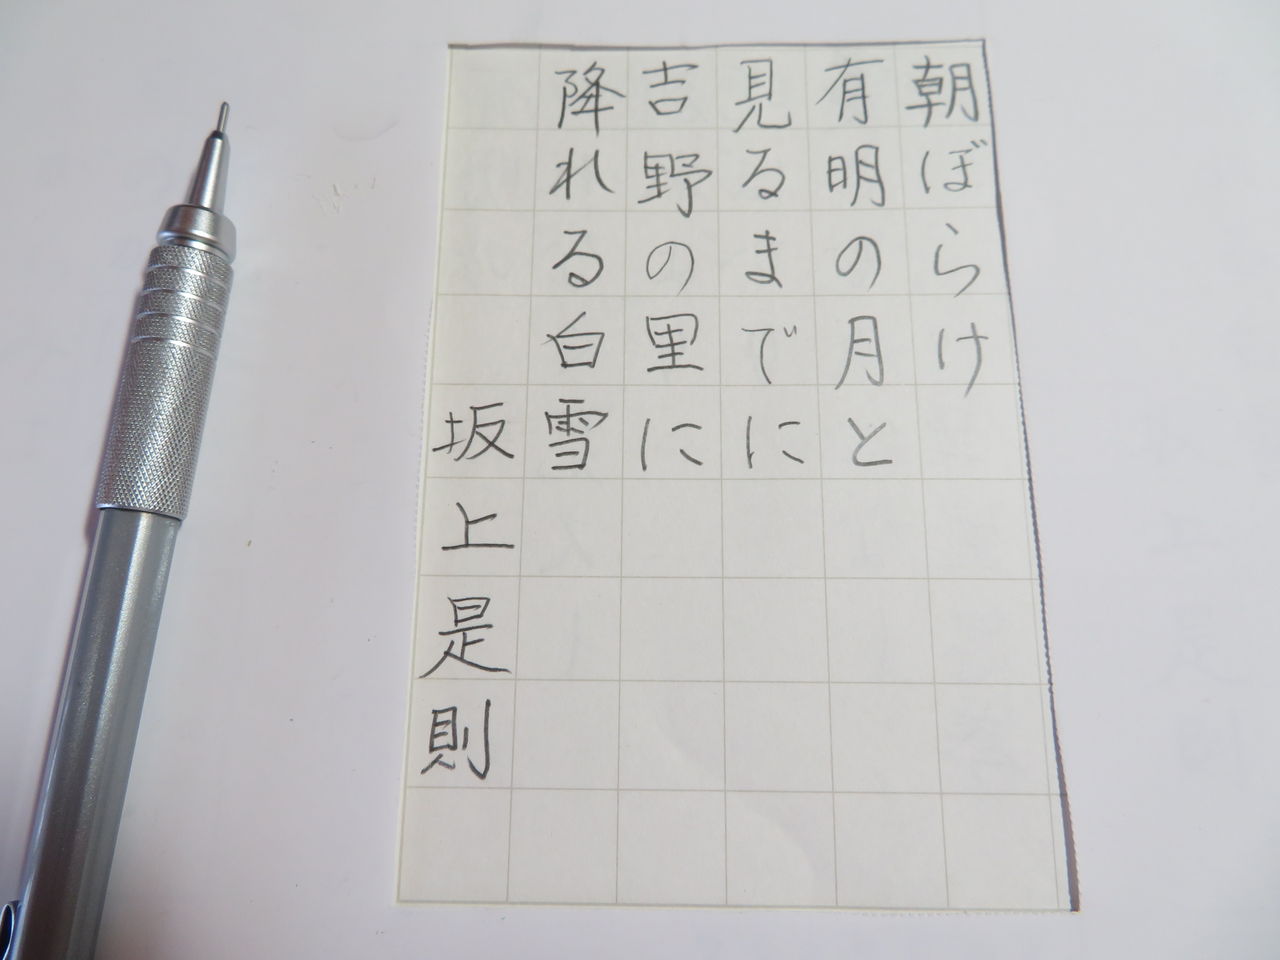 朝ぼらけ
有明の月と
見るまでに
吉野の里に
降れる白雪
坂上是則